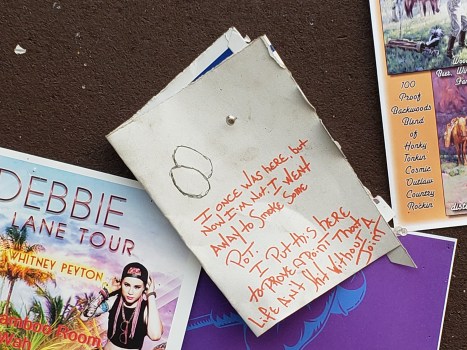 I ONCE WAS HERE, but
NOW I'M NOT. I WENT
AWAY to SMOKE SOME
POT.
I PUT this HERE
to PROVE A POINT THAT
LIFE AIN'T Shit WITHOUT A
JOINT
DEBBIE
LANE TOUR
WHITNEY PEYTON
Bamboo Room
100
Proof
Backwoods
Blend
of
Honky
Tonkin
Cosmic
Outlaw
Country
Rockin